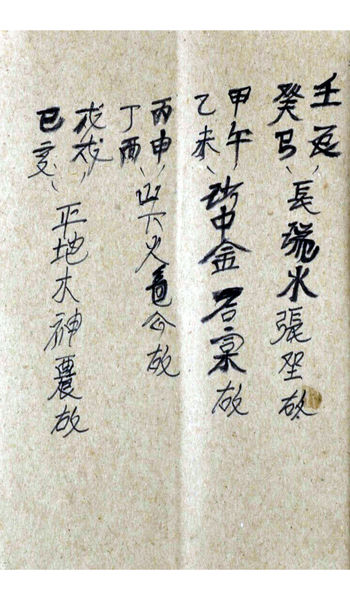 壬辰
癸巳、長瑞水張聖故
甲午
乙未、沙中金石稟故
丙申
丁酉、山下火公故
戊戌
己亥、平地木神農故